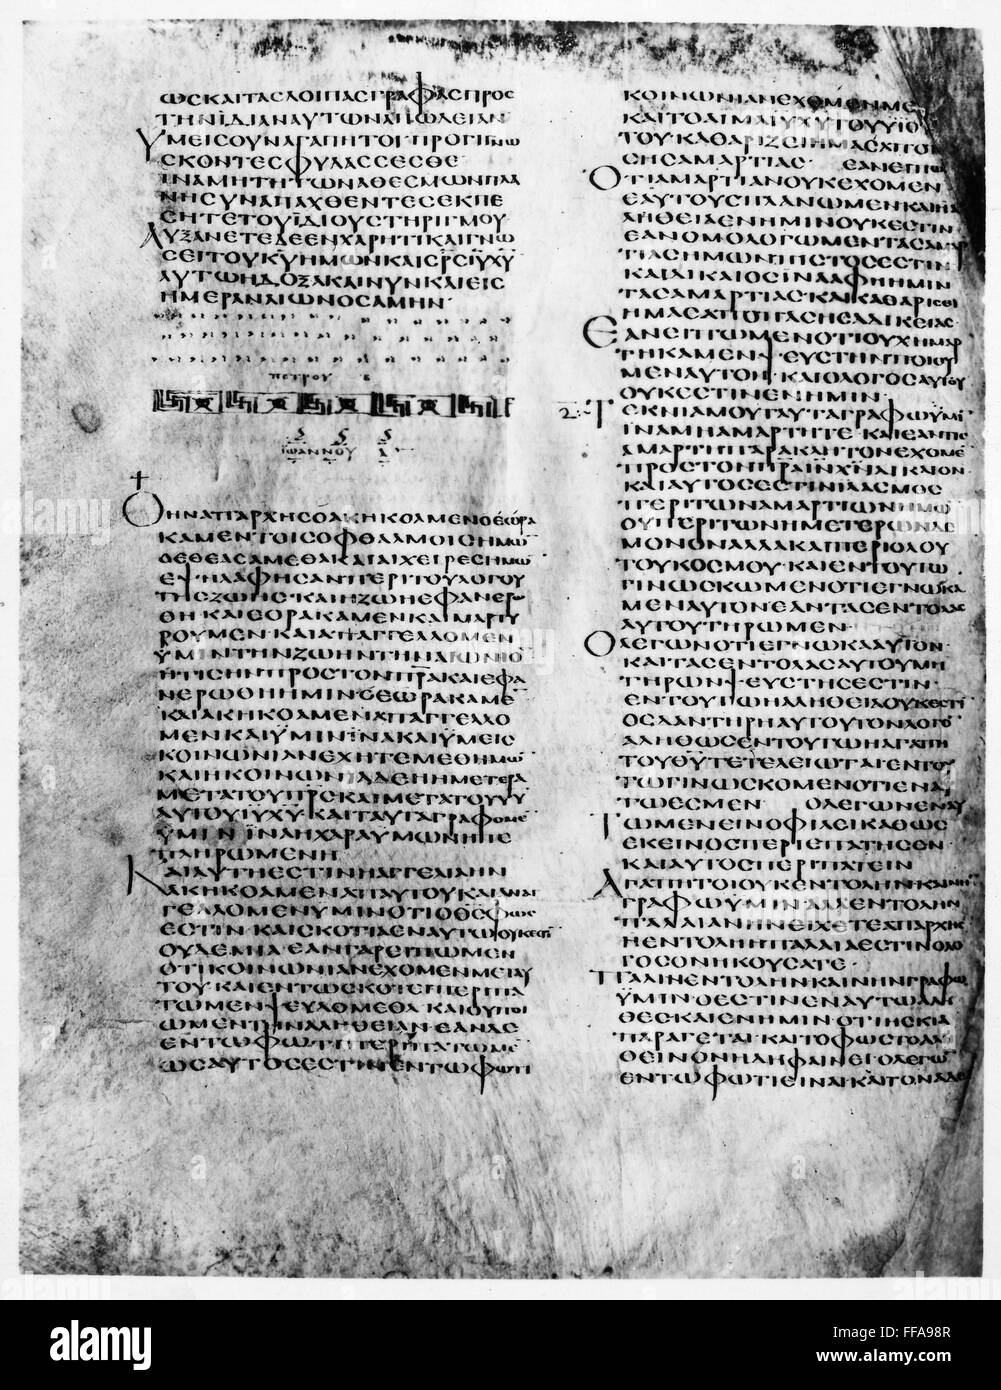 ωϲκαιταϲλοιπαϲγραφαϲπροϲ
τηνϊδιαναυτωναπωλειαν
Υμειϲουναγαπητοιπρογινω
ϲκοντεϲφυλαϲϲεϲθε
ϊναμητητωναθεϲμωνπλα
νηϲυναπαχθεντεϲεκπε
ϲητετουϊδιουϲτηριγμου
Αυξανετεδεενχαριτικαιγνω
ϲειτουκυημωνκαιϲρϲιυχυ
αυτωηδοξακαινυνκαιειϲ
ημεραναιωνοϲαμην·
πετρου β
ϊωαννου α
Οηναπαρχηϲοακηκοαμενοεωρα
καμεντοιϲοφθαλμοιϲημω
οεθεαϲαμεθακαιαιχειρεϲημω
εψηλαφηϲανπεριτουλογου
τηϲζωηϲ·καιηζωηεφανερω
θηκαιεορακαμενκαιμαρτυ
ρουμεν·καιαπαγγελλομεν
ϋμιντηνζωηντηναιωνιο
ητιϲηνπροϲτονπρακαιεφα
νερωθηημινοεωρακαμε
καιακηκοαμεναπαγγελλο
μενκαιϋμινϊνακαιϋμειϲ
κοινωνιανεχητεμεθημω
καιηκοινωνιαδεηημετερα
μετατουπρϲκαιμετατουυυ
αυτουιυχυ·καιταυταγραφομε
ϋμινϊναηχαραϋμωνηπε
πληρωμενη
Καιαυτηεϲτινηαγγελιαην
ακηκοαμεναπαυτουκαιαναγ
γελλομενϋμινοτιοθϲφωϲ
εϲτινκαιϲκοτιαεναυτωουκεϲτι
ουδεμιαεανγαρειπωμεν
οτικοινωνιανεχομενμεταυ
τουκαιεντωϲκοτειπεριπα
τωμενψευδομεθακαιουποι
ουμεντηναληθειανεανδε
εντωφωτιπεριπατωμε
ωϲαυτοϲεϲτινεντωφωτι
κοινωνιανεχομενμε
καιτοαιμαιυχυτουυϋτο
τουκαθαριζειημαϲαποπ
ϲηϲαμαρτιαϲ εανειπω
Οτιαμαρτιανουκεχομεν
εαυτουϲπλανωμενκαιηα
ληθειαενημινουκεϲτιν
εανομολογωμενταϲαμαρ
τιαϲημωνπιϲτοϲεϲτιν
καιδικαιοϲιναφηημιν
ταϲαμαρτιαϲ·καικαθαριϲει
ημαϲαποπαϲηϲαδικειαϲ
Εανειπωμενοτιουχημαρ
τηκαμενψευϲτηνποιου
μεναυτον·καιολογοϲαυτου
ουκεϲτινενημιν
2 Τεκνιαμουταυταγραφωϋμι
ιναμηαμαρτητε·καιεαντιϲ
αμαρτηπαρακλητονεχομε
προϲτονπραινχνδικαιον
καιαυτοϲεϲτινϊλαϲμοϲ
περιτωναμαρτιωνημω
ουπεριτωνημετερωνδε
μονοναλλακαιπεριολου
τουκοϲμου·καιεντουτω
γινωϲκομενοτιεγνωκα
μεναυτονεανταϲεντολαϲ
αυτουτηρωμεν·
Ολεγωνοτιεγνωκααυτον
καιταϲεντολαϲαυτουμη
τηρωνψευϲτηϲεϲτιν
εντουτωηαληθειαουκεϲτι
οϲδαντηρηαυτουτονλογο
αληθωϲεντουτωηαγαπη
τουθυτετελειωταιεντου
τωγινωϲκομενοτιεναυ
τωεϲμεν ολεγωνεναυ
Τωμενεινοφιλεικαθωϲ
εκεινοϲπεριεπατηϲεν
καιαυτοϲπεριπατειν
Αγαπητοιουκεντοληνκαινη
γραφωϋμιναλλεντολην
παλαιανηνειχετεαπαρχηϲ
ηεντοληηπαλαιαεϲτινολο
γοϲονηκουϲατε·
Παλινεντοληνκαινηνγραφω
ϋμινοεϲτινεναυτωαλη
θεϲκαιενημινοτιηϲκια
παραγεται·καιτοφωϲτοαλη
θεινονηδηφαινειολεγω
εντωφωτιειναικαιτοναδελ
alamy
Image ID: FFA98R
www.alamy.com